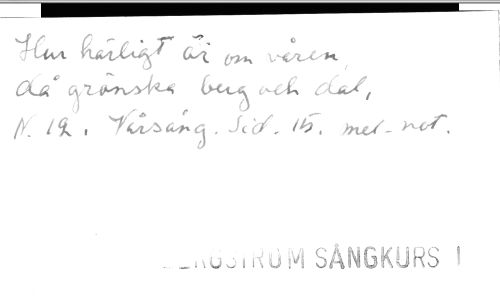 Hur härligt är om våren,
då grönska berg och dal,
N. 12. Vårsång. Sid. 15. mel-not.
BERGSTRÖM SÅNGKURS I